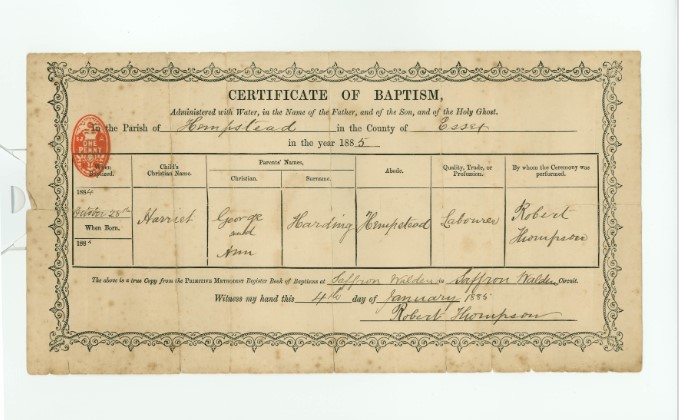 CERTIFICATE OF BAPTISM,
Administered with Water, in the Name of the Father, and of the Son, and of the Holy Ghost.
In the Parish of Hempstead in the County of Essex
in the year 1885
ONE PENNY
When Baptized. Child's Christian Name. Parents' Names, Christian. Surname. Abode. Quality, Trade, or Profession. By whom the Ceremony was performed.
1884
October 28th Harriet George and Ann Harding Hempstead Labourer Robert Thompson
When Born.
188
The above is a true Copy from the PRIMITIVE METHODIST Register Book of Baptisms at Saffron Walden in Saffron Walden Circuit.
Witness my hand this 4th day of January 1885
Robert Thompson